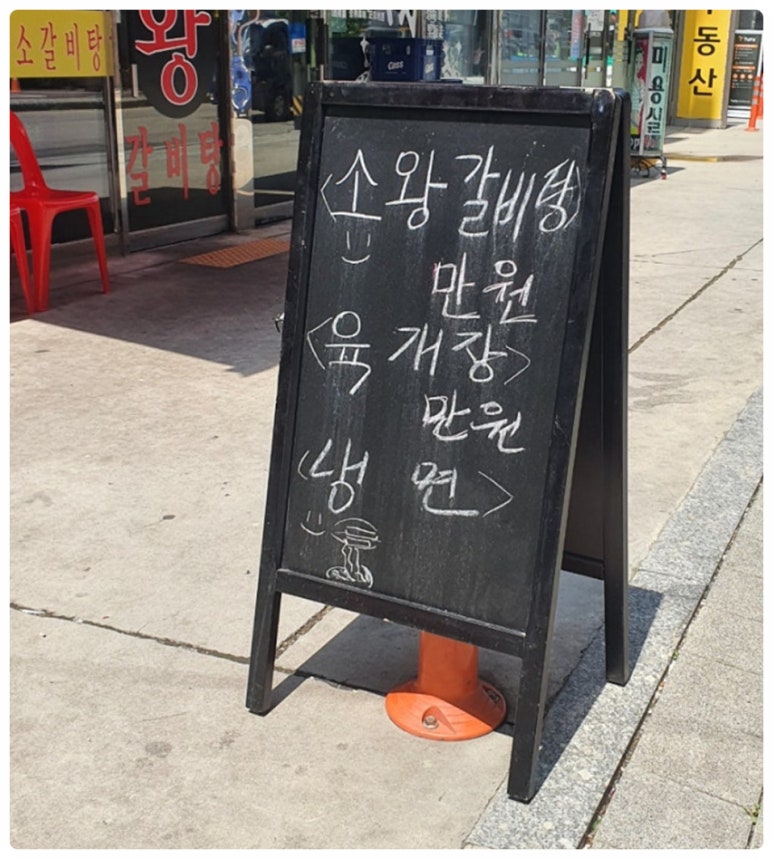 소갈비탕
왕
갈비탕
Cass
미용실
부동산
<소왕갈비탕>
만원
<육개장>
만원
<냉면>